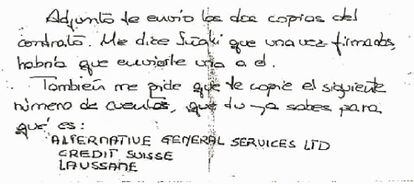 Adjunto te envio las dos copias del
contrato. Me dice Iñaki que una vez firmados,
habria que enviarle una a el.
Tambien me pide que te copie el siguiente
número de cuentas, que tu ya sabes para
qué es:
ALTERNATIVE GENERAL SERVICES LTD
CREDIT SUISSE
LAUSSANE